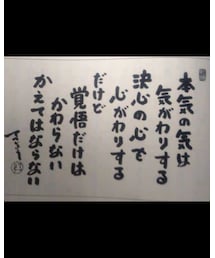 本気の気は
気がわりする
決心の心で
心がわりする
だけど
覚悟だけは
かわらない
かえてはならない